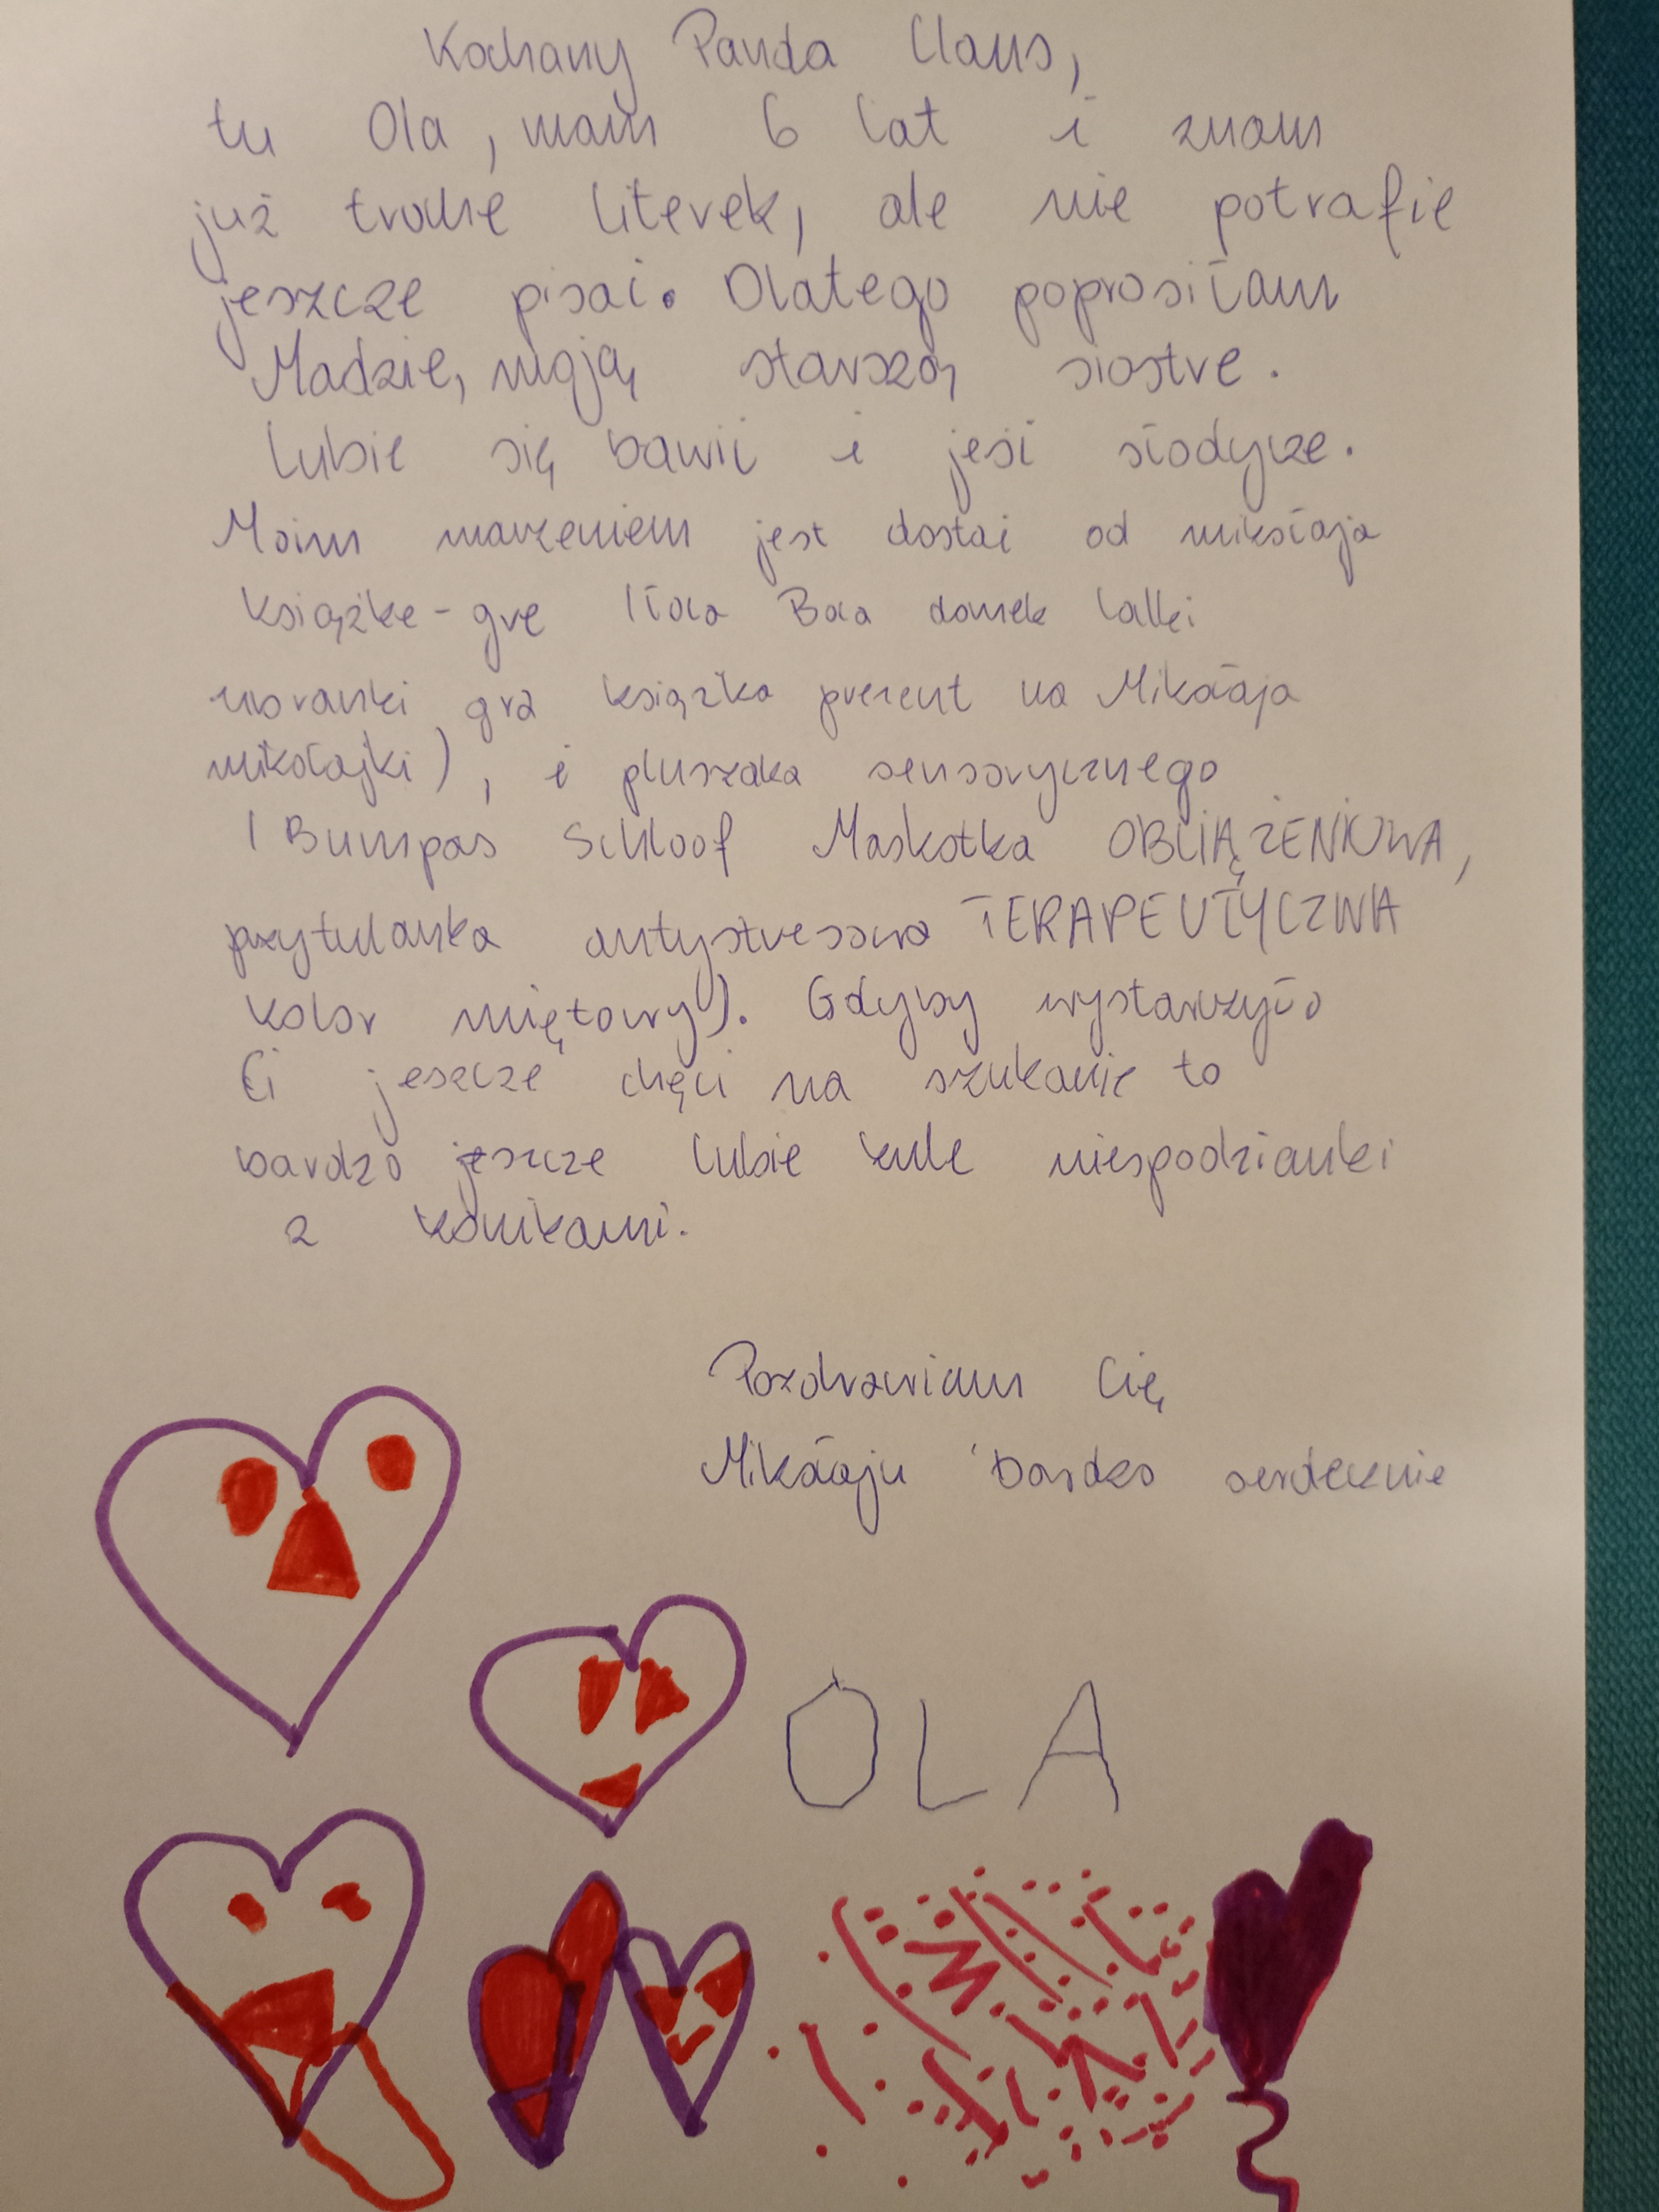 Kochany Panda Claus,
tu Ola, mam 6 lat i znam
już trochę literek, ale nie potrafię
jeszcze pisać. Dlatego poprosiłam
Madzię, moją starszą siostrę.
Lubię się bawić i jeść słodycze.
Moim marzeniem jest dostać od mikołaja
książkę-grę domek lalki
ubranki gra książka prezent na Mikołaja
mikołajki), i pluszaka sensorycznego
(Bumpas Schloof Maskotka OBCIĄŻENIOWA,
przytulanka antystresowa TERAPEUTYCZNA
kolor miętowy). Gdyby wystarczyło
Ci jeszcze chęci na szukanie to
bardzo jeszcze lubię kule niespodzianki
z konikami.
Pozdrawiam Cię
Mikołaju bardzo serdecznie
OLA